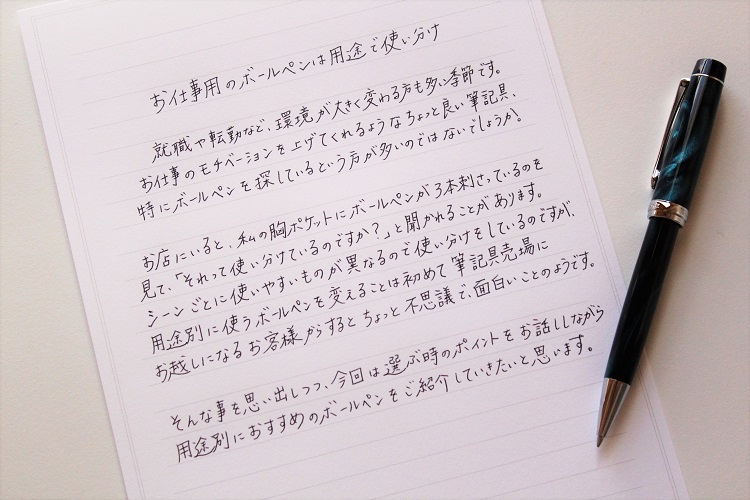 お仕事用のボールペンは用途で使い分け
就職や転勤など、環境が大きく変わる方も多い季節です。
お仕事のモチベーションを上げてくれるようなちょっと良い筆記具、
特にボールペンを探しているという方が多いのではないでしょうか。
お店にいると、私の胸ポケットにボールペンが3本刺さっているのを
見て、「それって使い分けているのですか？」と聞かれることがあります。
シーンごとに使いやすいものが異なるので使い分けをしているのですが、
用途別に使うボールペンを変えることは初めて筆記具売場に
お越しになるお客様からするとちょっと不思議で、面白いことのようです。
そんな事を思い出しつつ、今回は選ぶ時のポイントをお話ししながら
用途別におすすめのボールペンをご紹介していきたいと思います。